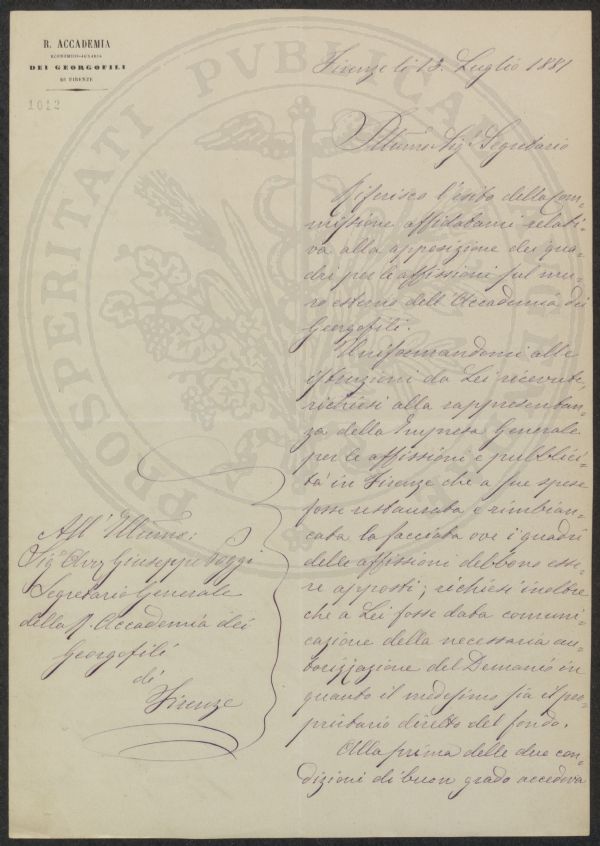 R. ACCADEMIA
ECONOMICO-AGRARIA
DEI GEORGOFILI
DI FIRENZE
1012
PROSPERITATI PVBLICAE
Firenze li 13. Luglio 1881
Illumo Sigr Segretario
Riferisco l'esito della com=
missione affidatami relati=
va alla apposizione dei qua=
dri per le affissioni sul mu=
ro esterno dell'Accademia dei
Georgofili.
Uniformandomi alle
istruzioni da Lei ricevute,
richiesi alla rappresentan=
za della Impresa Generale
per le affissioni e pubblici=
tà in Firenze che a sue spese
fosse restaurata e rimbian=
cata la facciata ove i quadri
delle affissioni debbono esse=
re apposti; richiesi inoltre
che a Lei fosse data comuni=
cazione della necessaria au=
torizzazione del Demanio in
quanto il medesimo sia il pro=
prietario diretto del fondo.
Alla prima delle due con=
dizioni di buon grado accedeva
All'Illumo:
Sigr Avv Giuseppe Poggi
Segretario Generale
della R. Accademia dei
Georgofili
di
Firenze